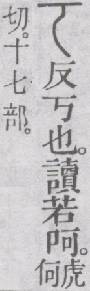 𠀀反丂也。讀若呵。虎何
切。十七部。